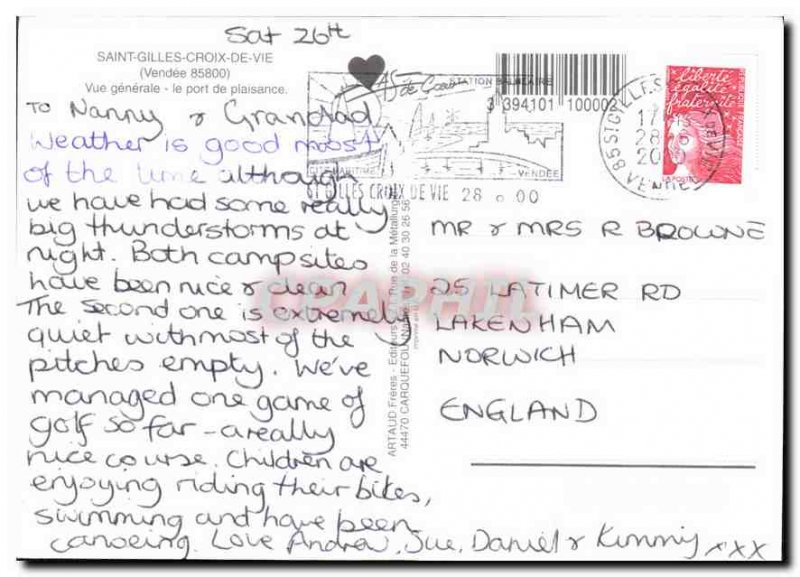 Sat 26th
SAINT-GILLES-CROIX-DE-VIE
(Vendée 85800)
Vue générale - le port de plaisance.
To Nanny & Grandad
Weather is good most
of the time although
we have had some really
big thunderstorms at
night. Both campsites
have been nice & clean
The second one is extremely
quiet with most of the
pitches empty. We've
managed one game of
golf so far - a really
nice course. Children are
enjoying riding their bikes,
swimming and have been
canoeing. Love Andrew, Sue, Daniel & Kimmy xxx
ARTAUD Frères - Editeurs Rue de la Métallurgie
44470 CARQUEFOU 02 40 30 26 56
STATION BALNEAIRE
3 394101 100002
CITE MARITIME
VENDEE
ST GILLES CROIX DE VIE 28 00
85 ST GILLES X DE VIE
17
28
VENDEE
liberté
égalité
fraternité
REPUBLIQUE FRANÇAISE
LA POSTE
CPAPHIL
MR & MRS R BROWNE
25 LATIMER RD
LAKENHAM
NORWICH
ENGLAND